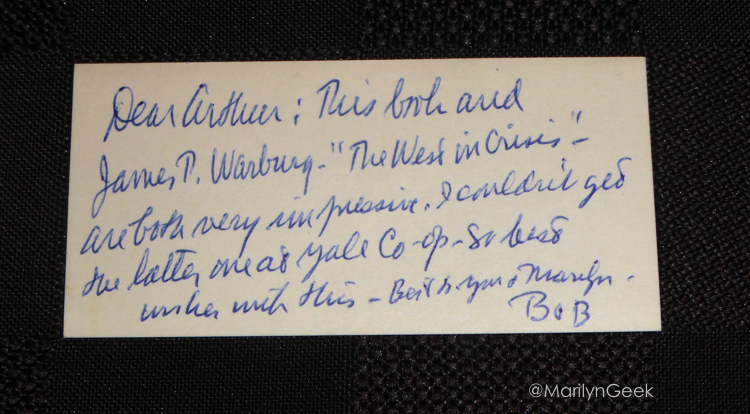 Dear Arthur: This book and
James P. Warburg - "The West in Crisis" -
are both very impressive. I couldn't get
the latter one at Yale Co-op - So best
wishes with this - Best to you & Marilyn.
Bob
@MarilynGeek